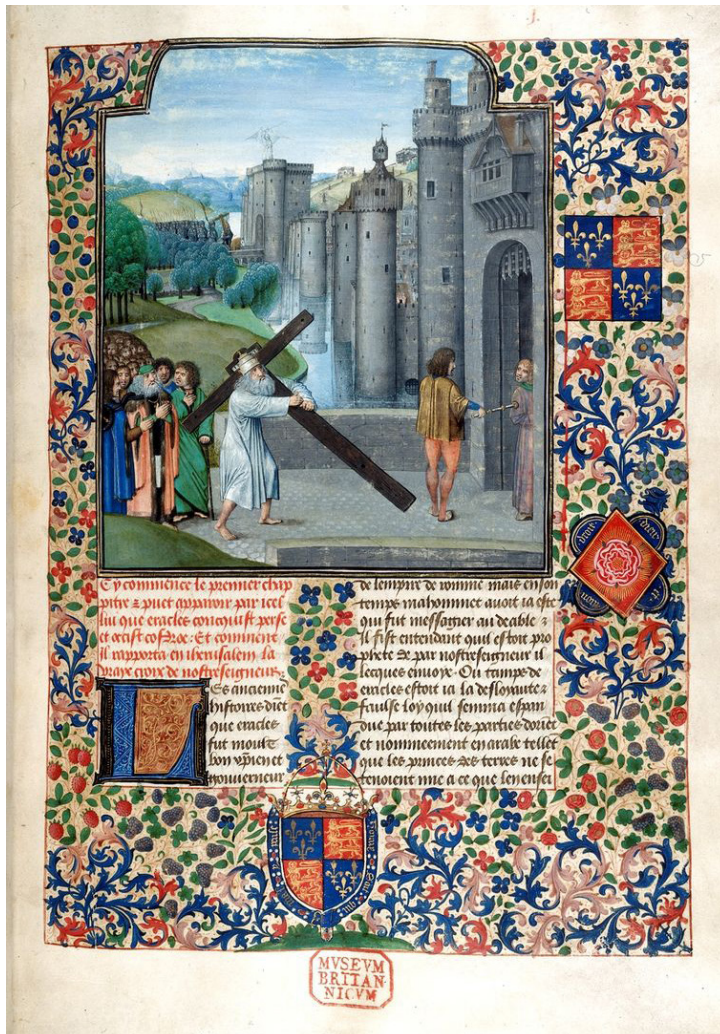 Cy commence le premier chap
pitre & puet apparoir par icel
lui que eracles conquist perse
et occist cosdroe: Et comment
il rapporta en iherusalem la
vraye croix de nostreseigneur.
Les anciennes
histoires dient
que eracles
fut moult
bon xpienet
gouverneur
de lempire de romme mais en son
temps mahommet avoit ia este
qui fut messagier au deable &
il fist entendant quil estoit pro
phete & par nostreseigneur il
lecques envoye. Ou tamps de
eracles estoit ia la desloyaute &
faulse loy quil semma espan
due par toutes les parties dorient
et nommeement en arabe tellet
que les princes des terres ne se
tenoient mie a ce que len ensei
droit
dieu
et
mon
MVSEVM
BRITAN
NICVM